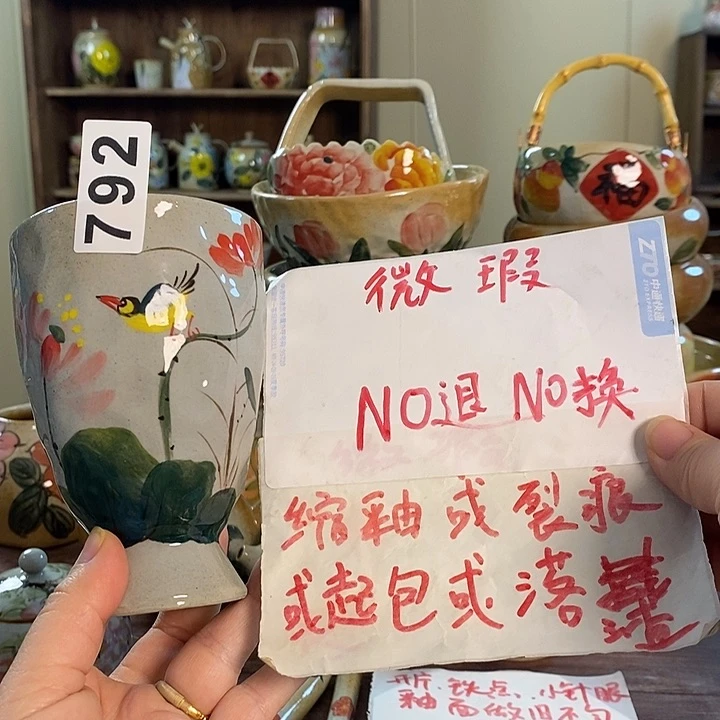 792
福
ZTO 中通快递
微瑕
NO退 NO换
缩釉或裂痕
或起包或落
开片.铁点、小针眼